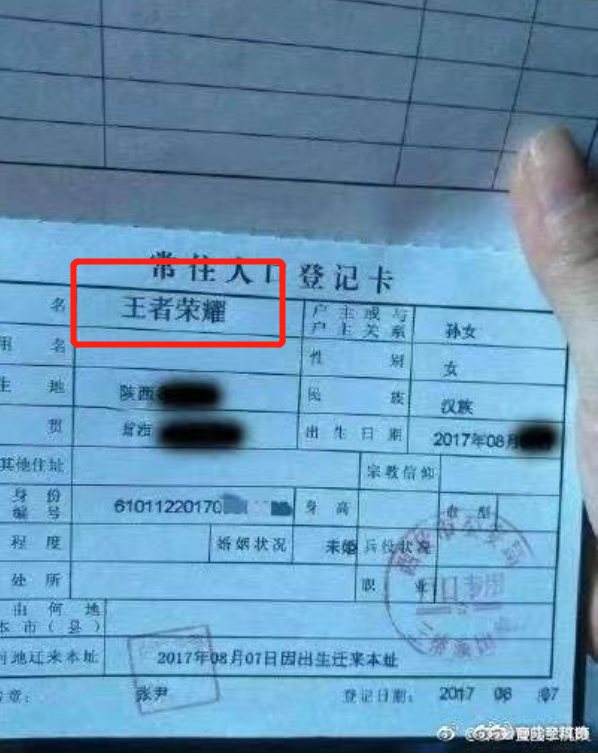 常住人口登记卡
名 王者荣耀 户主或与户主关系 孙女
用名 性别 女
生地 陕西 民族 汉族
贯 出生日期 2017年08月
其他住址 宗教信仰
身份编号 61011220170 身高 血型
程度 婚姻状况 未婚 兵役状况
处所 职业
由何地
本市(县)
何地迁来本址 2017年08月07日因出生迁来本址
章: 张尹 登记日期: 2017 08 07